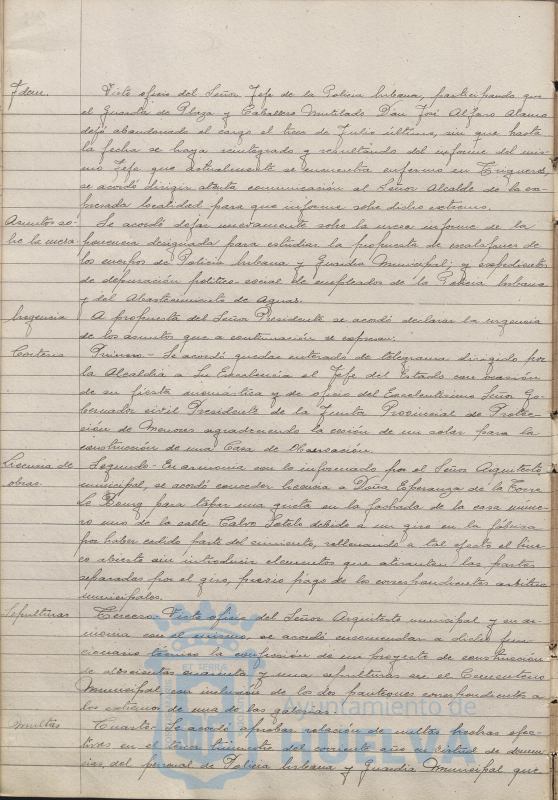 Idem. Visto oficio del Señor Jefe de la Policía Urbana, participando que
el Guarda de Plaza y Caballero Mutilado Don José Alfaro Alamo
dejó abandonado el cargo el trece de Julio último, sin que hasta
la fecha se haya reintegrado y resultando del informe del mis-
mo Jefe que actualmente se encuentra enfermo en Trigueros,
se acordó dirigir atenta comunicación al Señor Alcalde de la ex-
presada localidad para que informe sobre dicho extremo.
Asuntos so- Se acordó dejar nuevamente sobre la mesa informe de la
bre la mesa ponencia designada para estudiar la propuesta de escalafones de
los cuerpos de Policía Urbana y Guardia Municipal; y expedientes
de depuración político-social de empleados de la Policía Urbana
y del Abastecimiento de Aguas.
Urgencia A propuesta del Señor Presidente se acordó declarar la urgencia
de los asuntos que a continuación se expresan:
Cortesía Primero.- Se acordó quedar enterado de telegrama dirigido por
la Alcaldía a Su Excelencia el Jefe del Estado con ocasión
de su fiesta onomástica y de oficio del Excelentísimo Señor Go-
bernador civil Presidente de la Junta Provincial de Protec-
ción de Menores agradeciendo la cesión de un solar para la
construcción de una Casa de Observación.
Licencia de Segundo.- En armonía con lo informado por el Señor Arquitecto
obras. municipal, se acordó conceder licencia a Doña Esperanza de la Torre
Le Bourg para tapar una grieta en la fachada de la casa núme-
ro uno de la calle Calvo Sotelo debido a un giro en la fábrica
por haber cedido parte del cimiento, rellenando a tal efecto el hue-
co abierto sin introducir elementos que atiranten las partes
separadas por el giro, previo pago de los correspondientes arbitrios
municipales.
Sepulturas Tercero. Visto oficio del Señor Arquitecto municipal y en ar-
monía con el mismo, se acordó encomendar a dicho fun-
cionario técnico la confección de un proyecto de construcción
de doscientas cuarenta y una sepulturas en el Cementerio
Municipal con inclusión de los dos panteones correspondientes a
los extremos de una de las galerías.
Multas Cuarto. Se acordó aprobar relación de multas hechas efec-
tivas en el tercer trimestre del corriente año en virtud de denun-
cias del personal de Policía Urbana y Guardia Municipal que
Ayuntamiento de
HUELVA